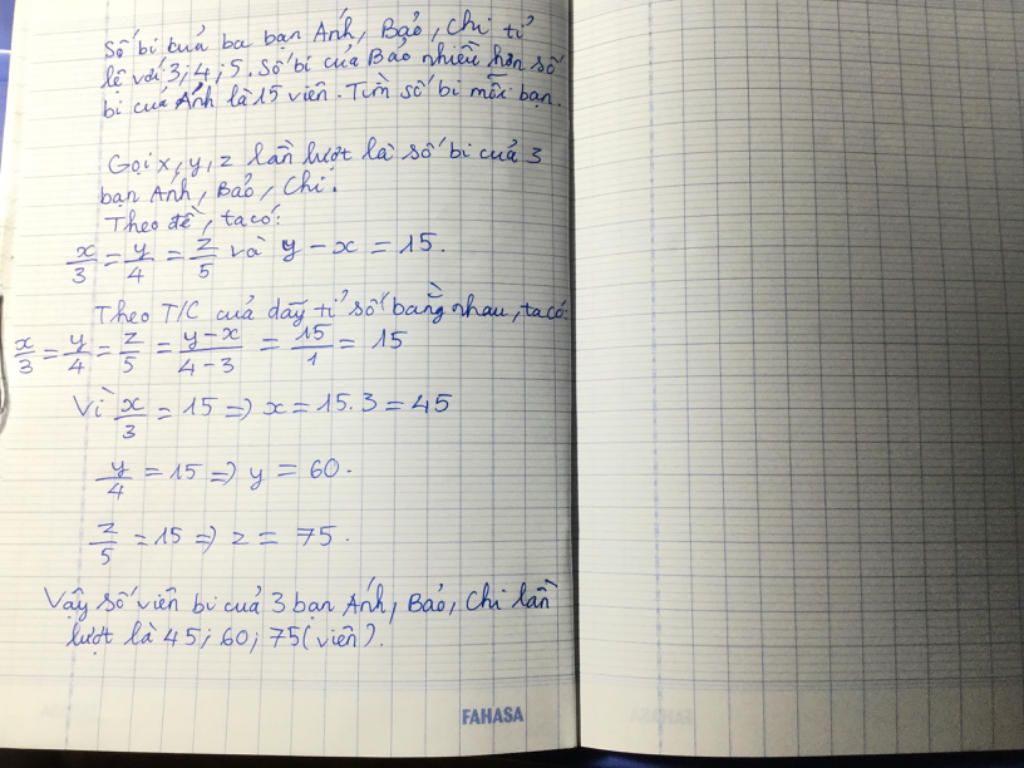 Số bi của ba bạn Ánh, Bảo, Chi tỉ
lệ với 3; 4; 5. Số bi của Bảo nhiều hơn số
bi của Ánh là 15 viên. Tìm số bi mỗi bạn.
Gọi x, y, z lần lượt là số bi của 3
bạn Ánh, Bảo, Chi.
Theo đề, ta có:
x/3 = y/4 = z/5 và y - x = 15.
Theo T/C của dãy tỉ số bằng nhau, ta có:
x/3 = y/4 = z/5 = (y-x)/(4-3) = 15/1 = 15
Vì x/3 = 15 => x = 15.3 = 45
y/4 = 15 => y = 60.
z/5 = 15 => z = 75.
Vậy số viên bi của 3 bạn Ánh, Bảo, Chi lần
lượt là 45; 60; 75 (viên).
FAHASA
FAHASA